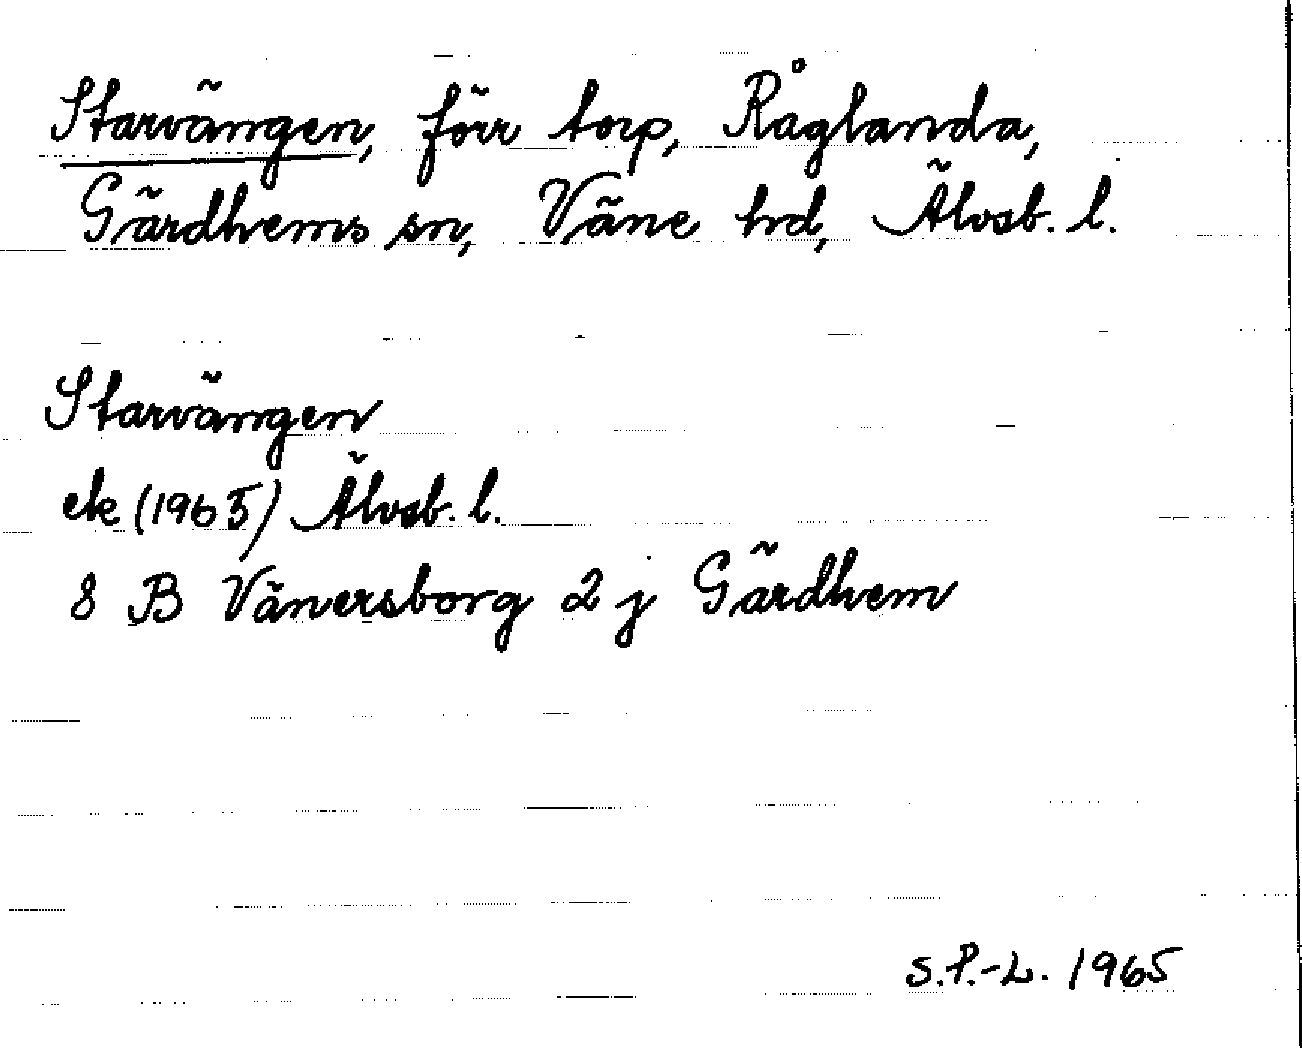 Starvängen, förr torp, Råglanda,
Gärdhems sn, Väne hd, Älvsb. l.
Starvängen
ek (1965) Älvsb. l.
8 B Vänersborg 2 j Gärdhem
S.P.-L. 1965